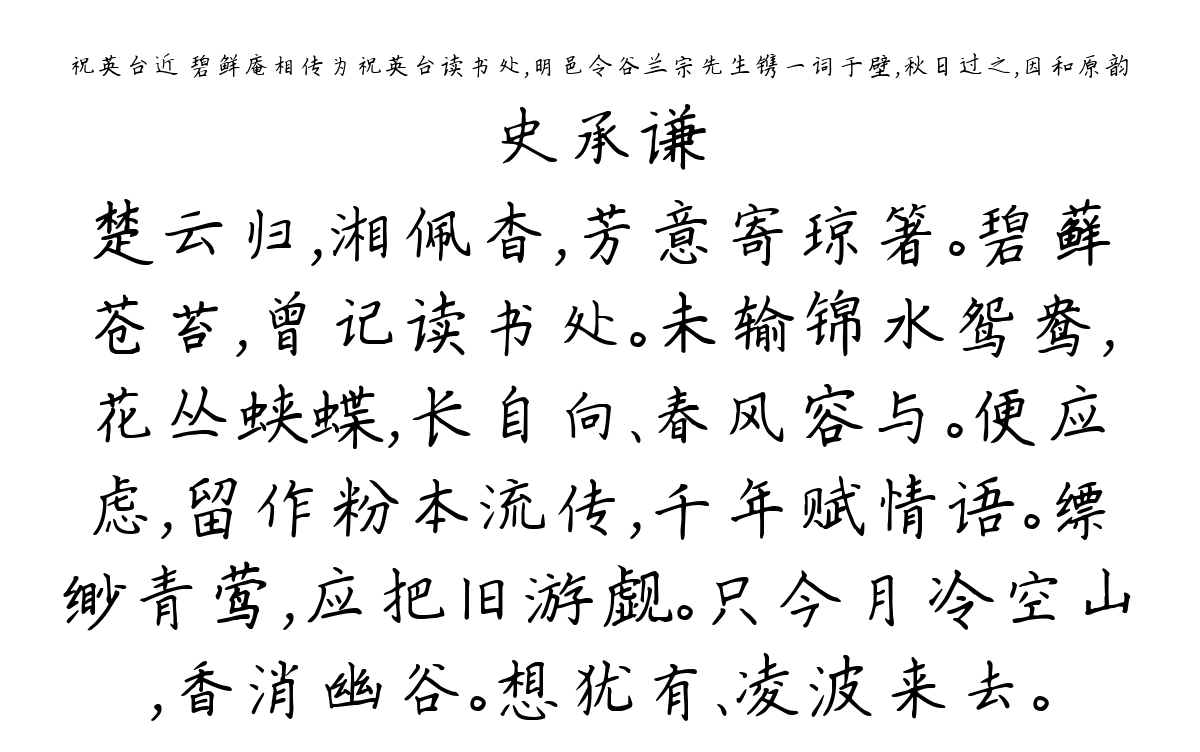 祝英台近 碧鲜庵相传为祝英台读书处,明邑令谷兰宗先生镌一词于壁,秋日过之,因和原韵
史承谦
楚云归,湘佩杳,芳意寄琼箸。碧藓
苍苔,曾记读书处。未输锦水鸳鸯,
花丛蛱蝶,长自向、春风容与。便应
虑,留作粉本流传,千年赋情语。缥
缈青莺,应把旧游觑。只今月冷空山
,香消幽谷。想犹有、凌波来去。